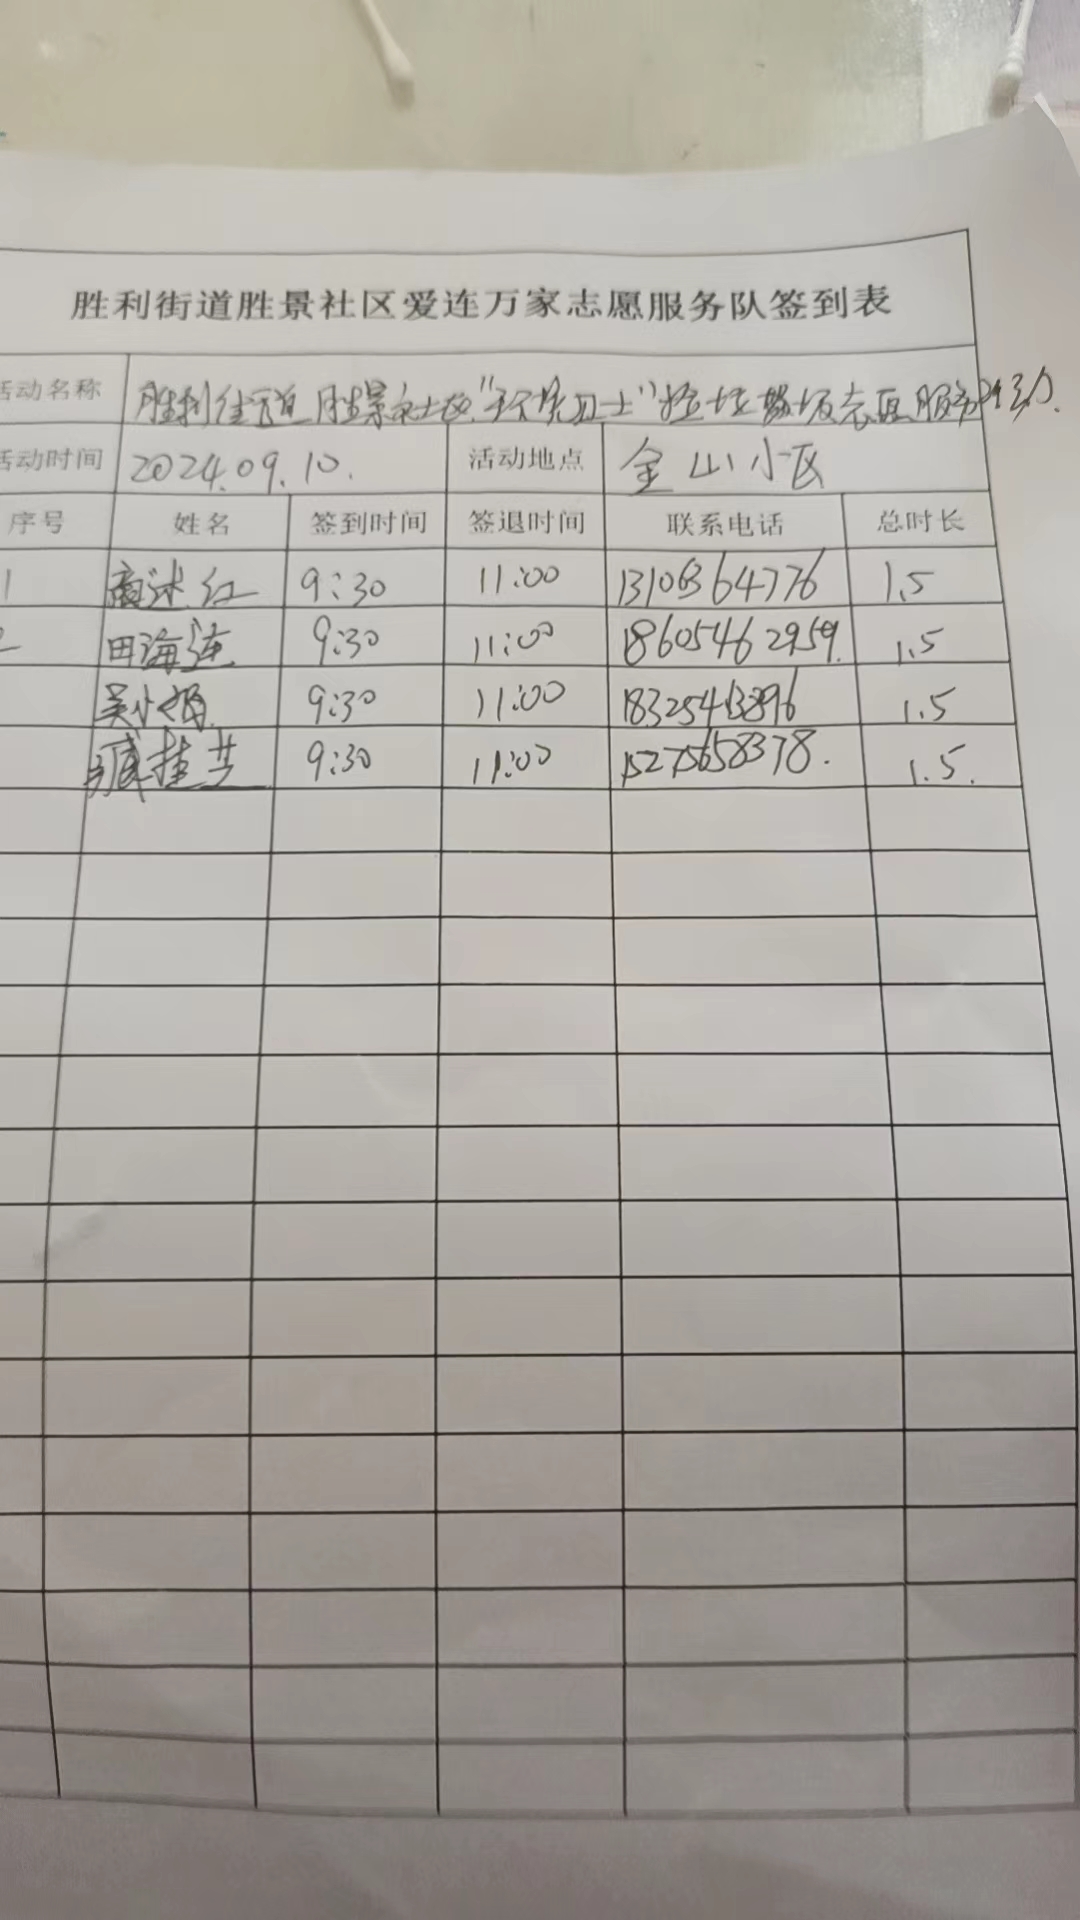 胜利街道胜景社区爱连万家志愿服务队签到表
活动名称 胜利街道胜景社区"环境卫士"捡垃圾志愿服务活动.
活动时间 2024.09.10. 活动地点 金山小区
序号 姓名 签到时间 签退时间 联系电话 总时长
1 商述红 9:30 11:00 13106364776 1.5
2 田海连 9:30 11:00 18605462959. 1.5
吴小娟 9:30 11:00 1.5
臧桂兰 9:30 11:00 15275658378. 1.5.